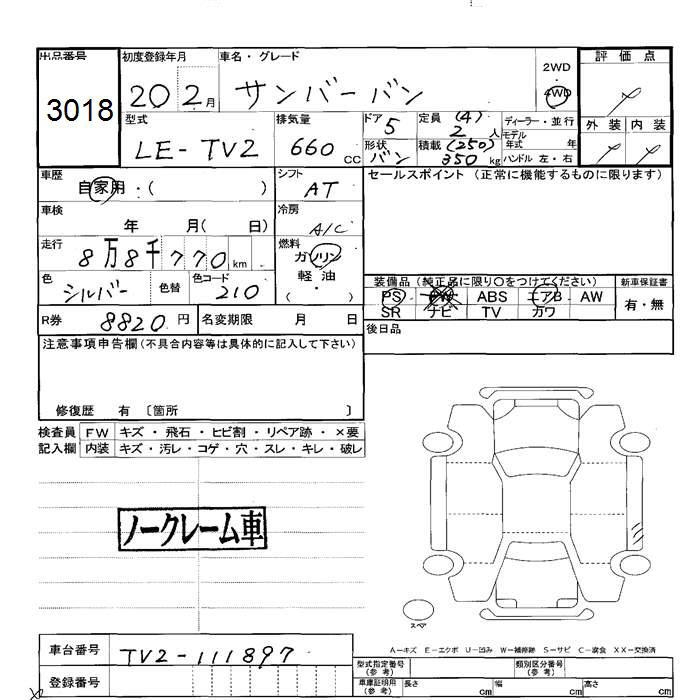 出品番号 初度登録年月 車名・グレード 評価点
3018 20 2月 サンバーバン 2WD 4WD
型式 排気量 ドア 定員 (4) ディーラー・並行 外装 内装
LE-TV2 660cc 5 2人 モデル年式 年
形状 バン 積載 (250) 350kg ハンドル 左・右
車歴 シフト セールスポイント (正常に機能するものに限ります)
自家用・( ) AT
車検 年 月( 日) 冷房 A/C
走行 8万8千770km 燃料 ガソリン
軽油
( ・ )
色 シルバー 色替 色コード 210
装備品 (純正品に限り○をつけてください) 新車保証書
PS PW ABS エアB AW 有・無
SR ナビ TV カワ
R券 8820円 名変期限 月 日 後日品
注意事項申告欄(不具合内容等は具体的に記入して下さい)
修復歴 有 〔箇所 〕
検査員 FW キズ・飛石・ヒビ割・リペア跡・×要
記入欄 内装 キズ・汚レ・コゲ・穴・スレ・キレ・破レ
ノークレーム車
スペア
A−キズ E−エクボ U−凹み W−補修跡 S−サビ C−腐食 XX−交換済
車台番号 TV2-111897
型式指定番号(参考) 類別区分番号(参考)
登録番号 車庫証明用(参考) 長さ cm 幅 cm 高さ cm